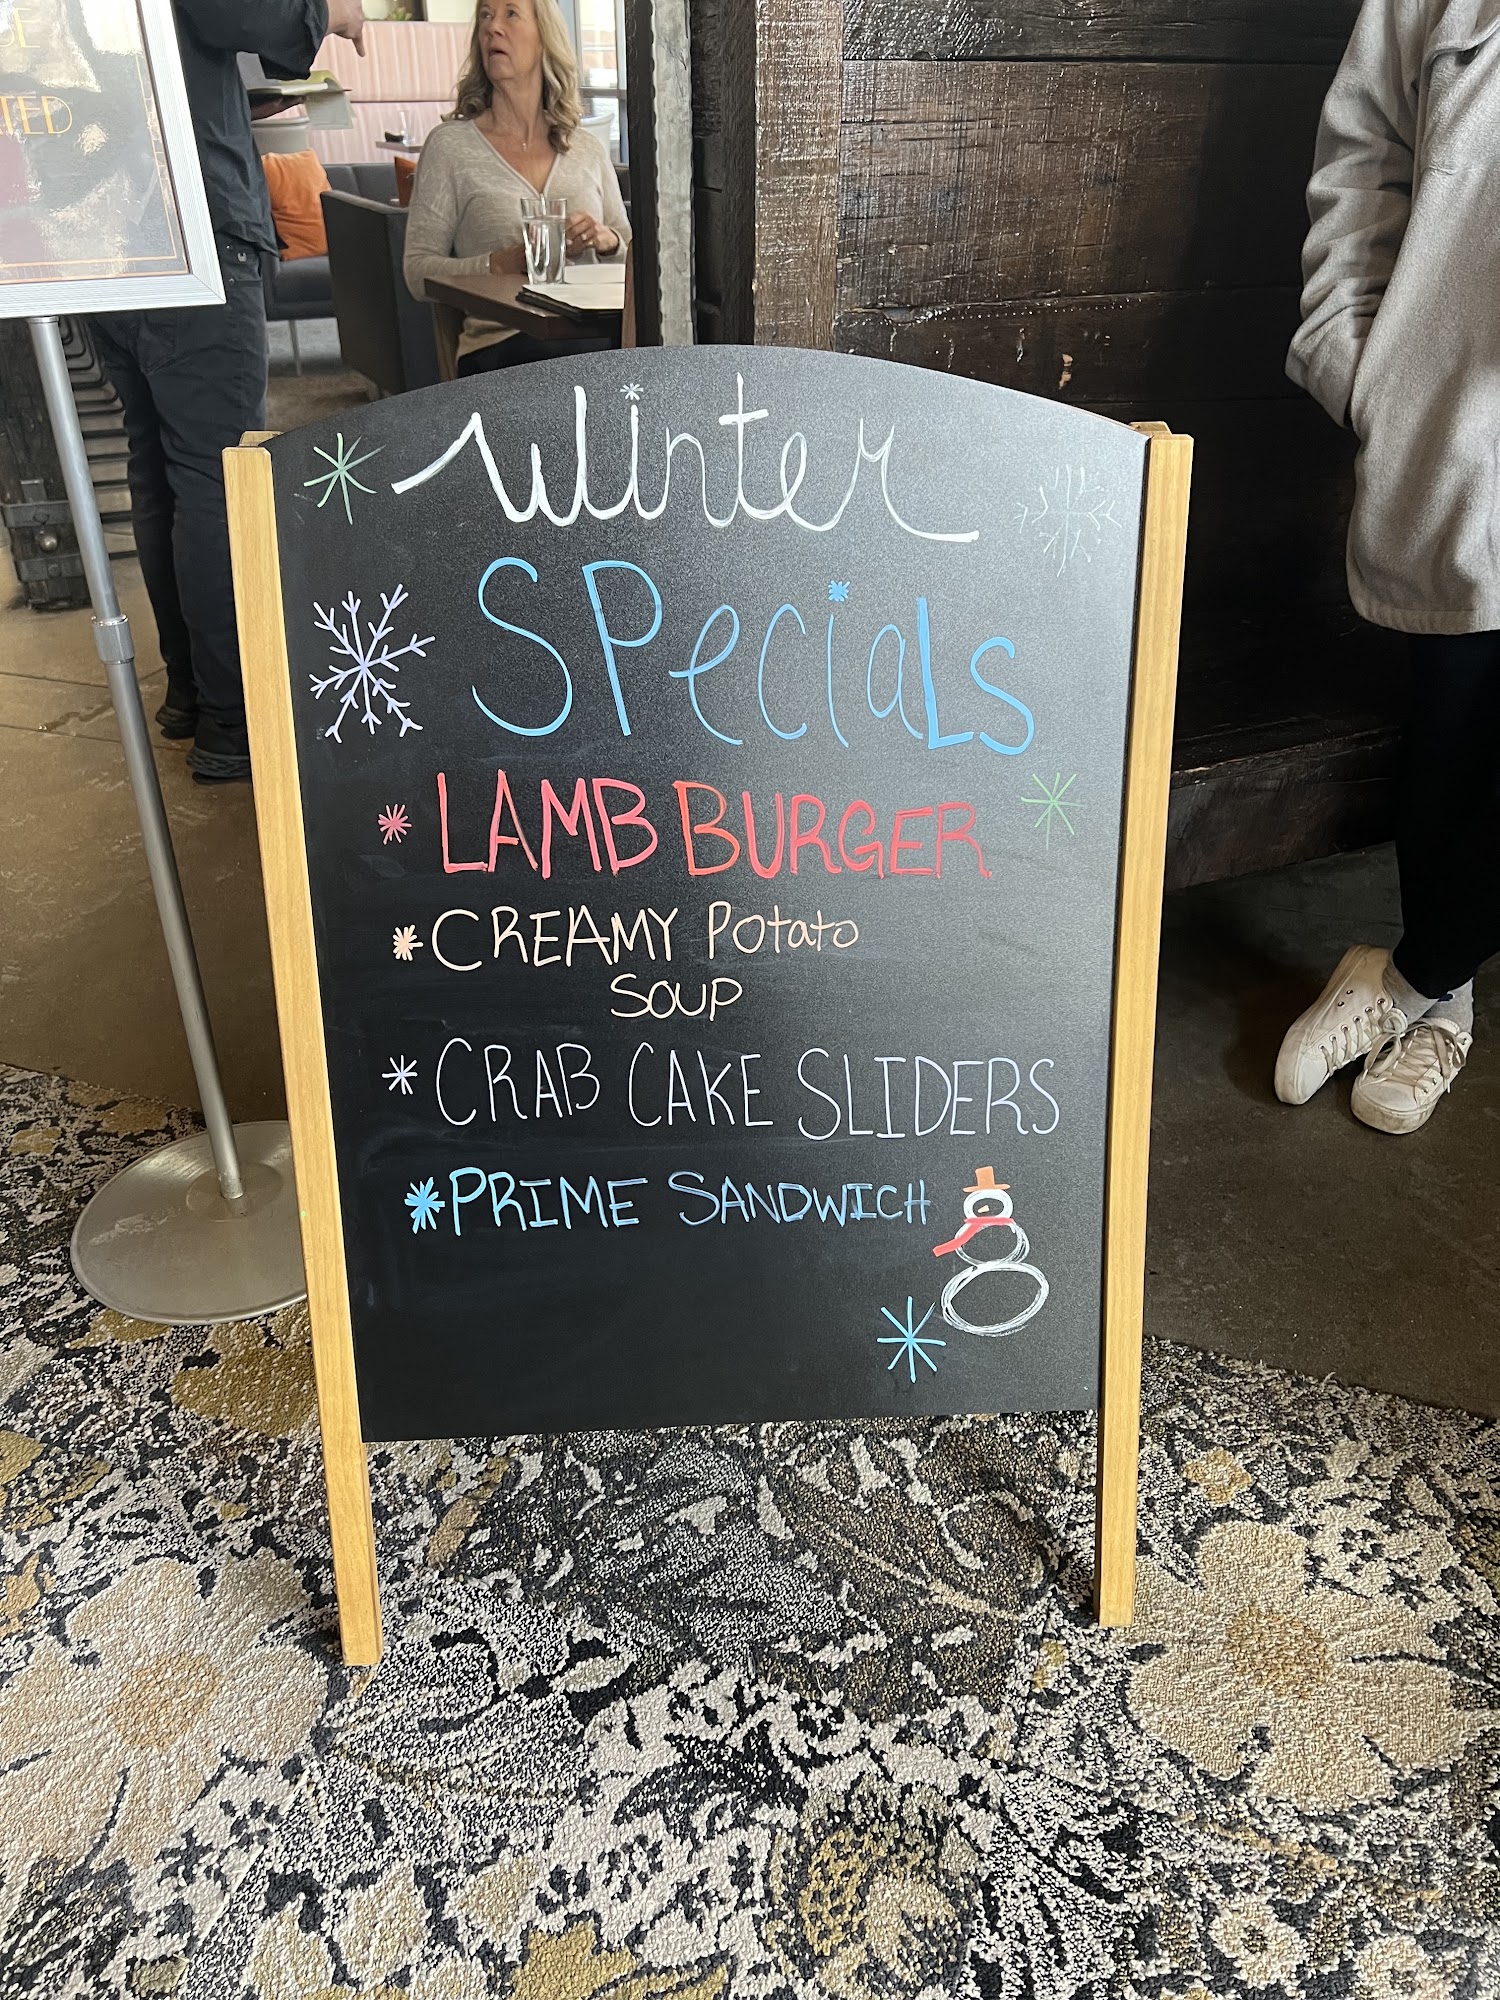 Winter
SPecials
LAMB BURGER
CREAMY Potato
SOUP
CRAB CAKE SLIDERS
PRIME SANDWICH